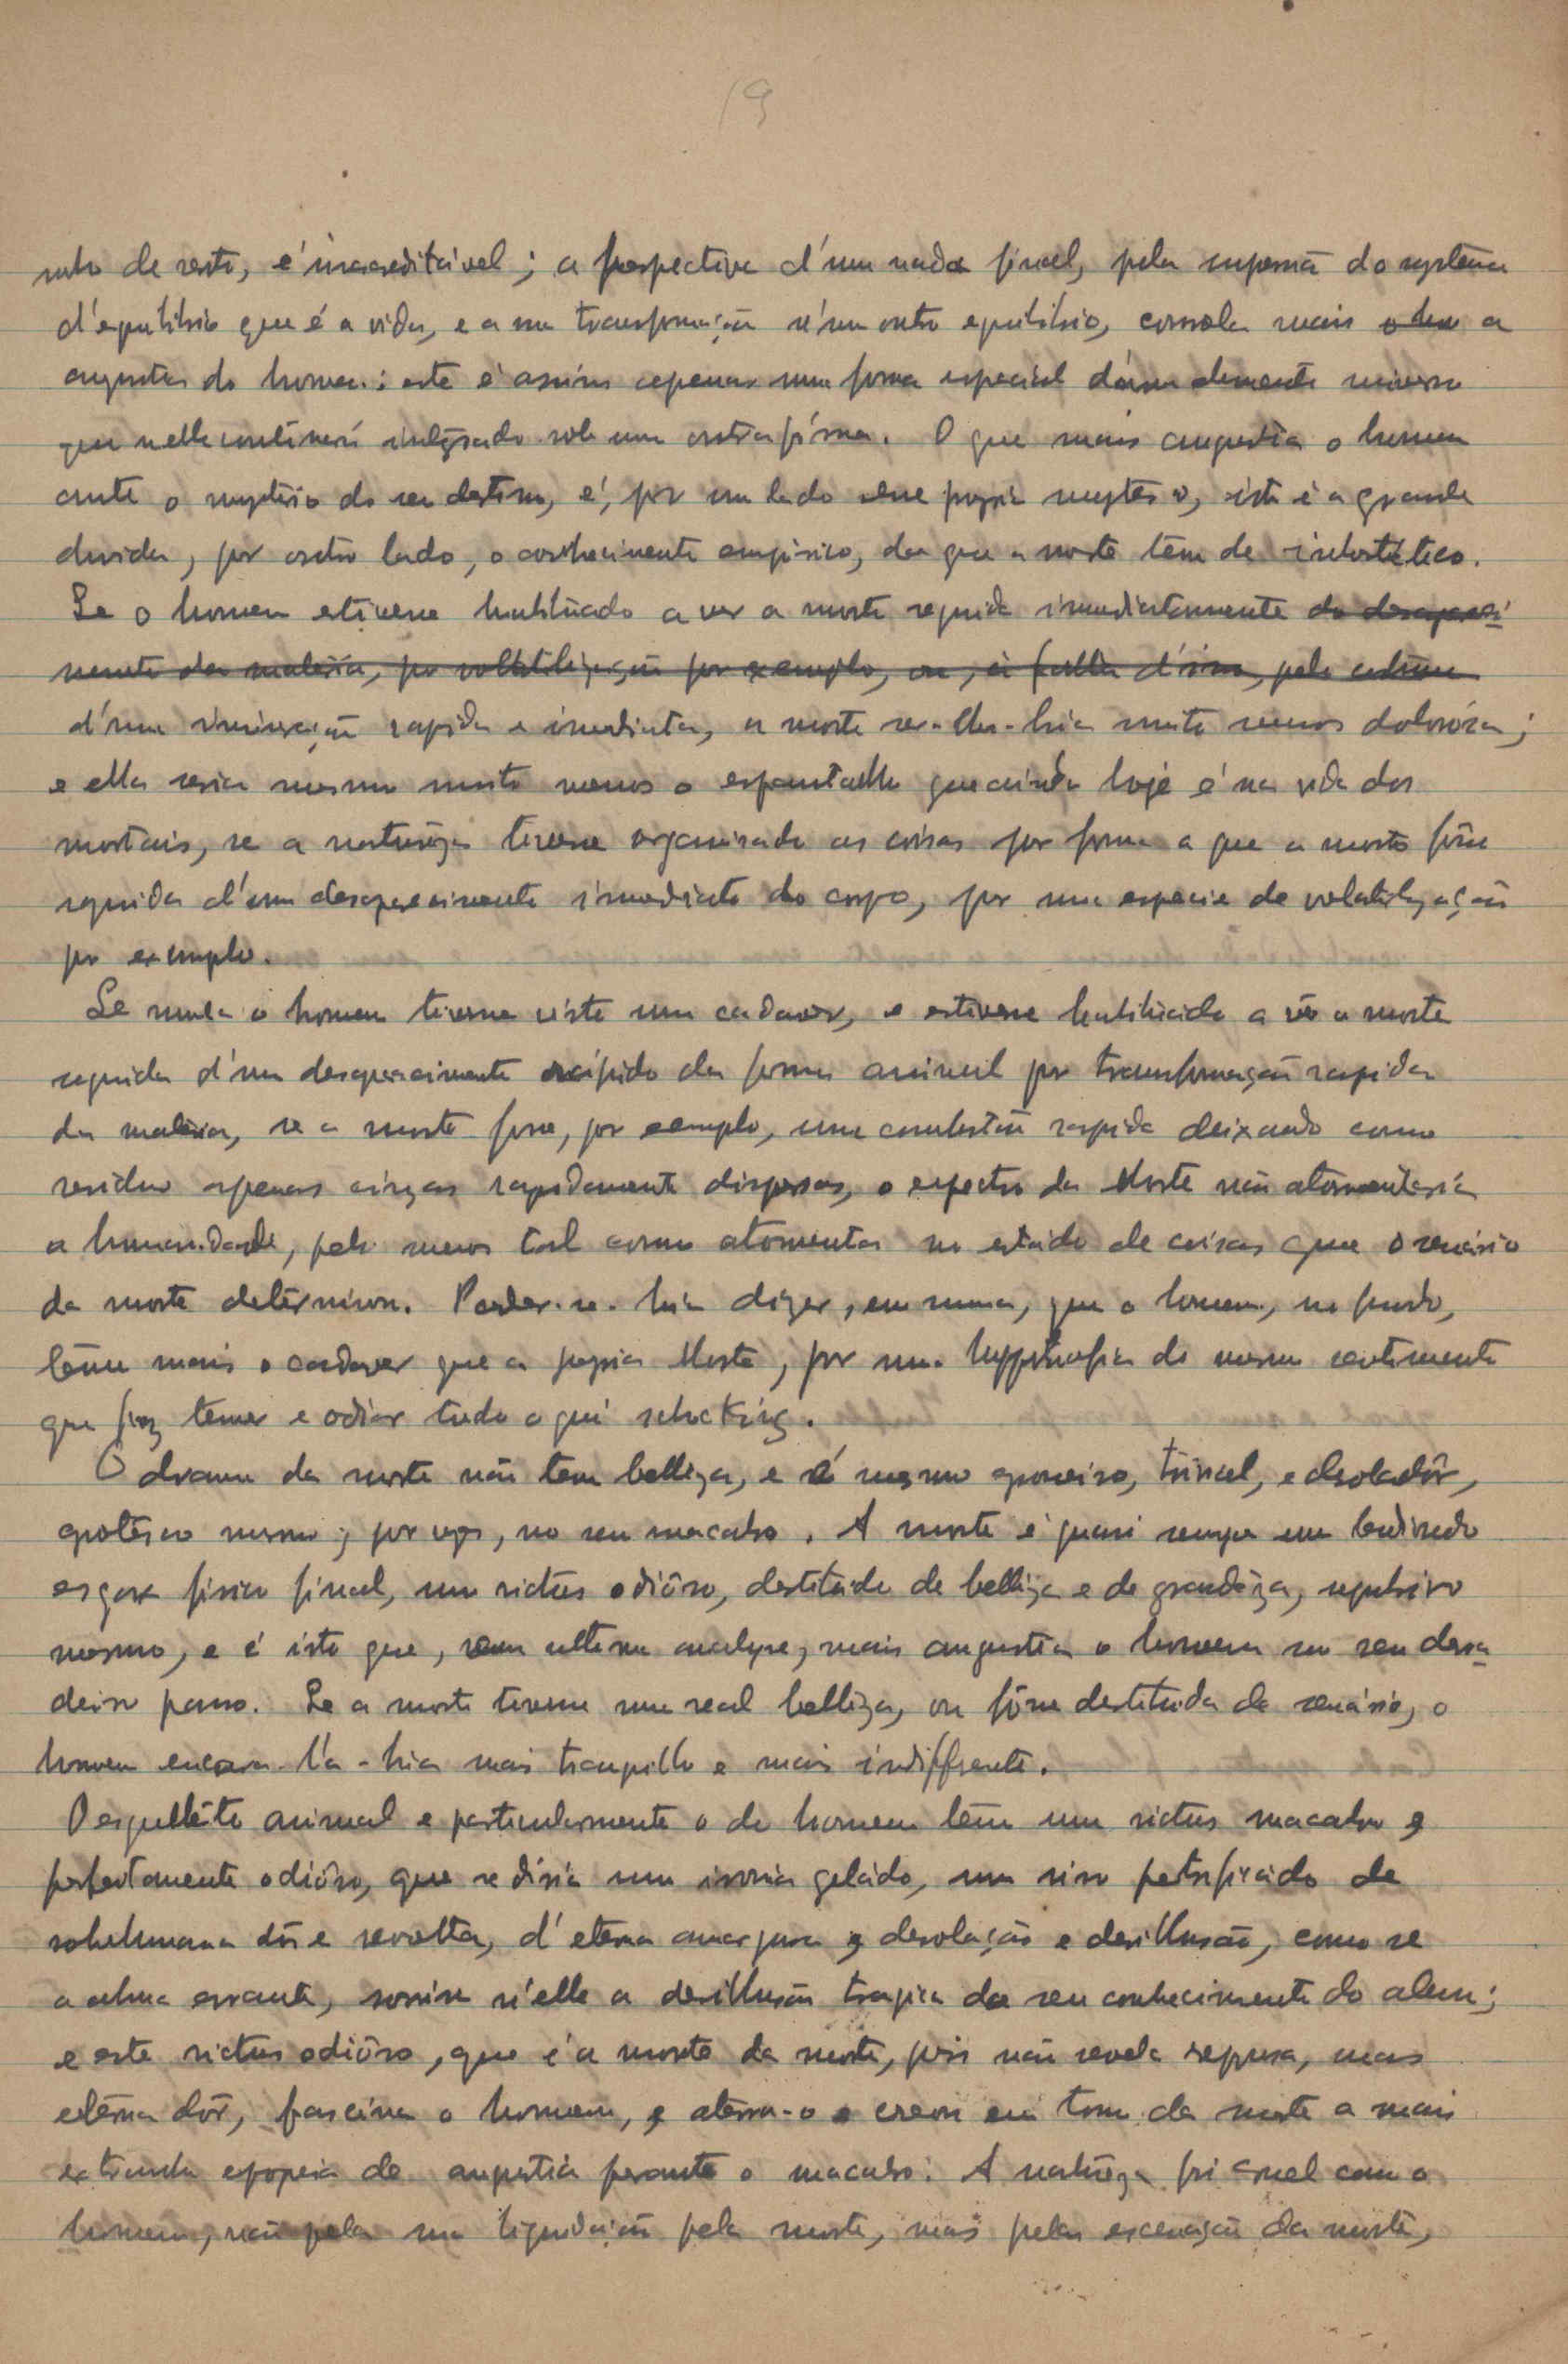 19
de resto, é inacreditável; a perspectiva d'um nada final, pela supensã do systema
d'equilibrio que é a vida, e a sua transformaçã n'um outro equilibrio, consola mais a
angustia do homem: este é assim apenas uma forma especial universo
que nelle continuará integrado sob uma outra fórma. O que mais angustia o homem
ante o mysterio do seu destino, é, por um lado esse proprio mysterio, isto é a grande
duvida, por outro lado, o conhecimento empirico, do que a morte tem de inestético.
Se o homem estivesse habituado a ver a morte seguida immediatamente do desapareci-
mento da materia, por volatilização por exemplo, ou, à falta d'isso, pelo
d'uma incineraçã rapida e imediata, a morte ser-lhe-hia muito menos dolorósa;
e ella seria mesmo muito menos o espantalho que ainda hoje é na vida dos
mortais, se a naturêza tivesse organisado as coisas por forma a que a morte fôsse
seguida d'um desaparecimento imediato do corpo, por uma especie de volatilizaçã
por exemplo.
Se nunca o homem tivesse visto um cadaver, e estivesse habituado a vêr a morte
seguida d'um desaparecimento rápido da forma animal por transformaçã rapida
da materia, se a morte fosse, por exemplo, uma combustã rapida deixando como
residuo apenas cinzas rapidamente dispersas, o espectro da Morte não atormentaria
a humanidade, pelo menos tal como atormenta no estado de coisas que o cenário
da morte determinou. Poder-se-hia dizer, em suma, que o homem, no fundo,
teme mais o cadaver que a propria Morte, por uma hyppertrofia do mesmo sentimento
que faz temer e odiar tudo o que schocking.
O drama da morte não tem belleza, e é mesmo grosseiro, trivial, e desoladôr,
grotesco mesmo, por vezes, no seu macabro. A morte é quasi sempre um hediondo
esgar fisico final, um rictus odiôso, destituido de belleza e de grandêza, repulsivo
mesmo, e é isto que, em ultima analyse, mais angustia o homem no seu derra-
deiro passo. Se a morte tivesse uma real belleza, ou fôsse destituida de cenário, o
homem encara-la-hia mais tranquillo e mais indifferente.
O esquelêto animal e particularmente o do homem têm um rictus macabro e
perfeitamente odiôso, que se diria uma ironia gelada, um riso petrificado de
sobrehumana dôr e revolta, d'eterna amargura e desolação e desillusão, como se
a alma errante, sorrisse n'elle a desillusão tragica do seu conhecimento do alem;
e este rictus odiôso, que é a morte da morte, pois não revela repouso, mas
eterna dôr, fascina o homem, e aterra-o e creou em torno da morte a mais
extranha epopeia de angustia perante o macabro. A naturêza foi cruel com o
homem, não pela sua liquidaçã pela morte, mas pela escenaçã da morte,